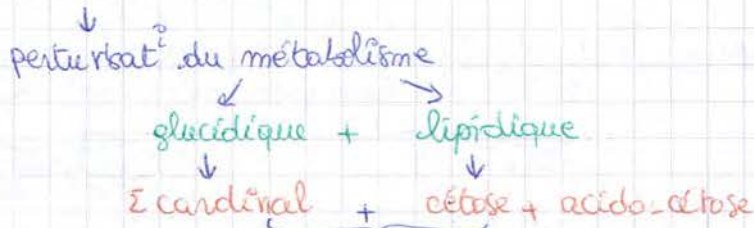 ↓
perturbat° du métabolisme
↙ ↘
glucidique + lipidique
↓ ↓
Σ cardinal + cétose + acido-cétose